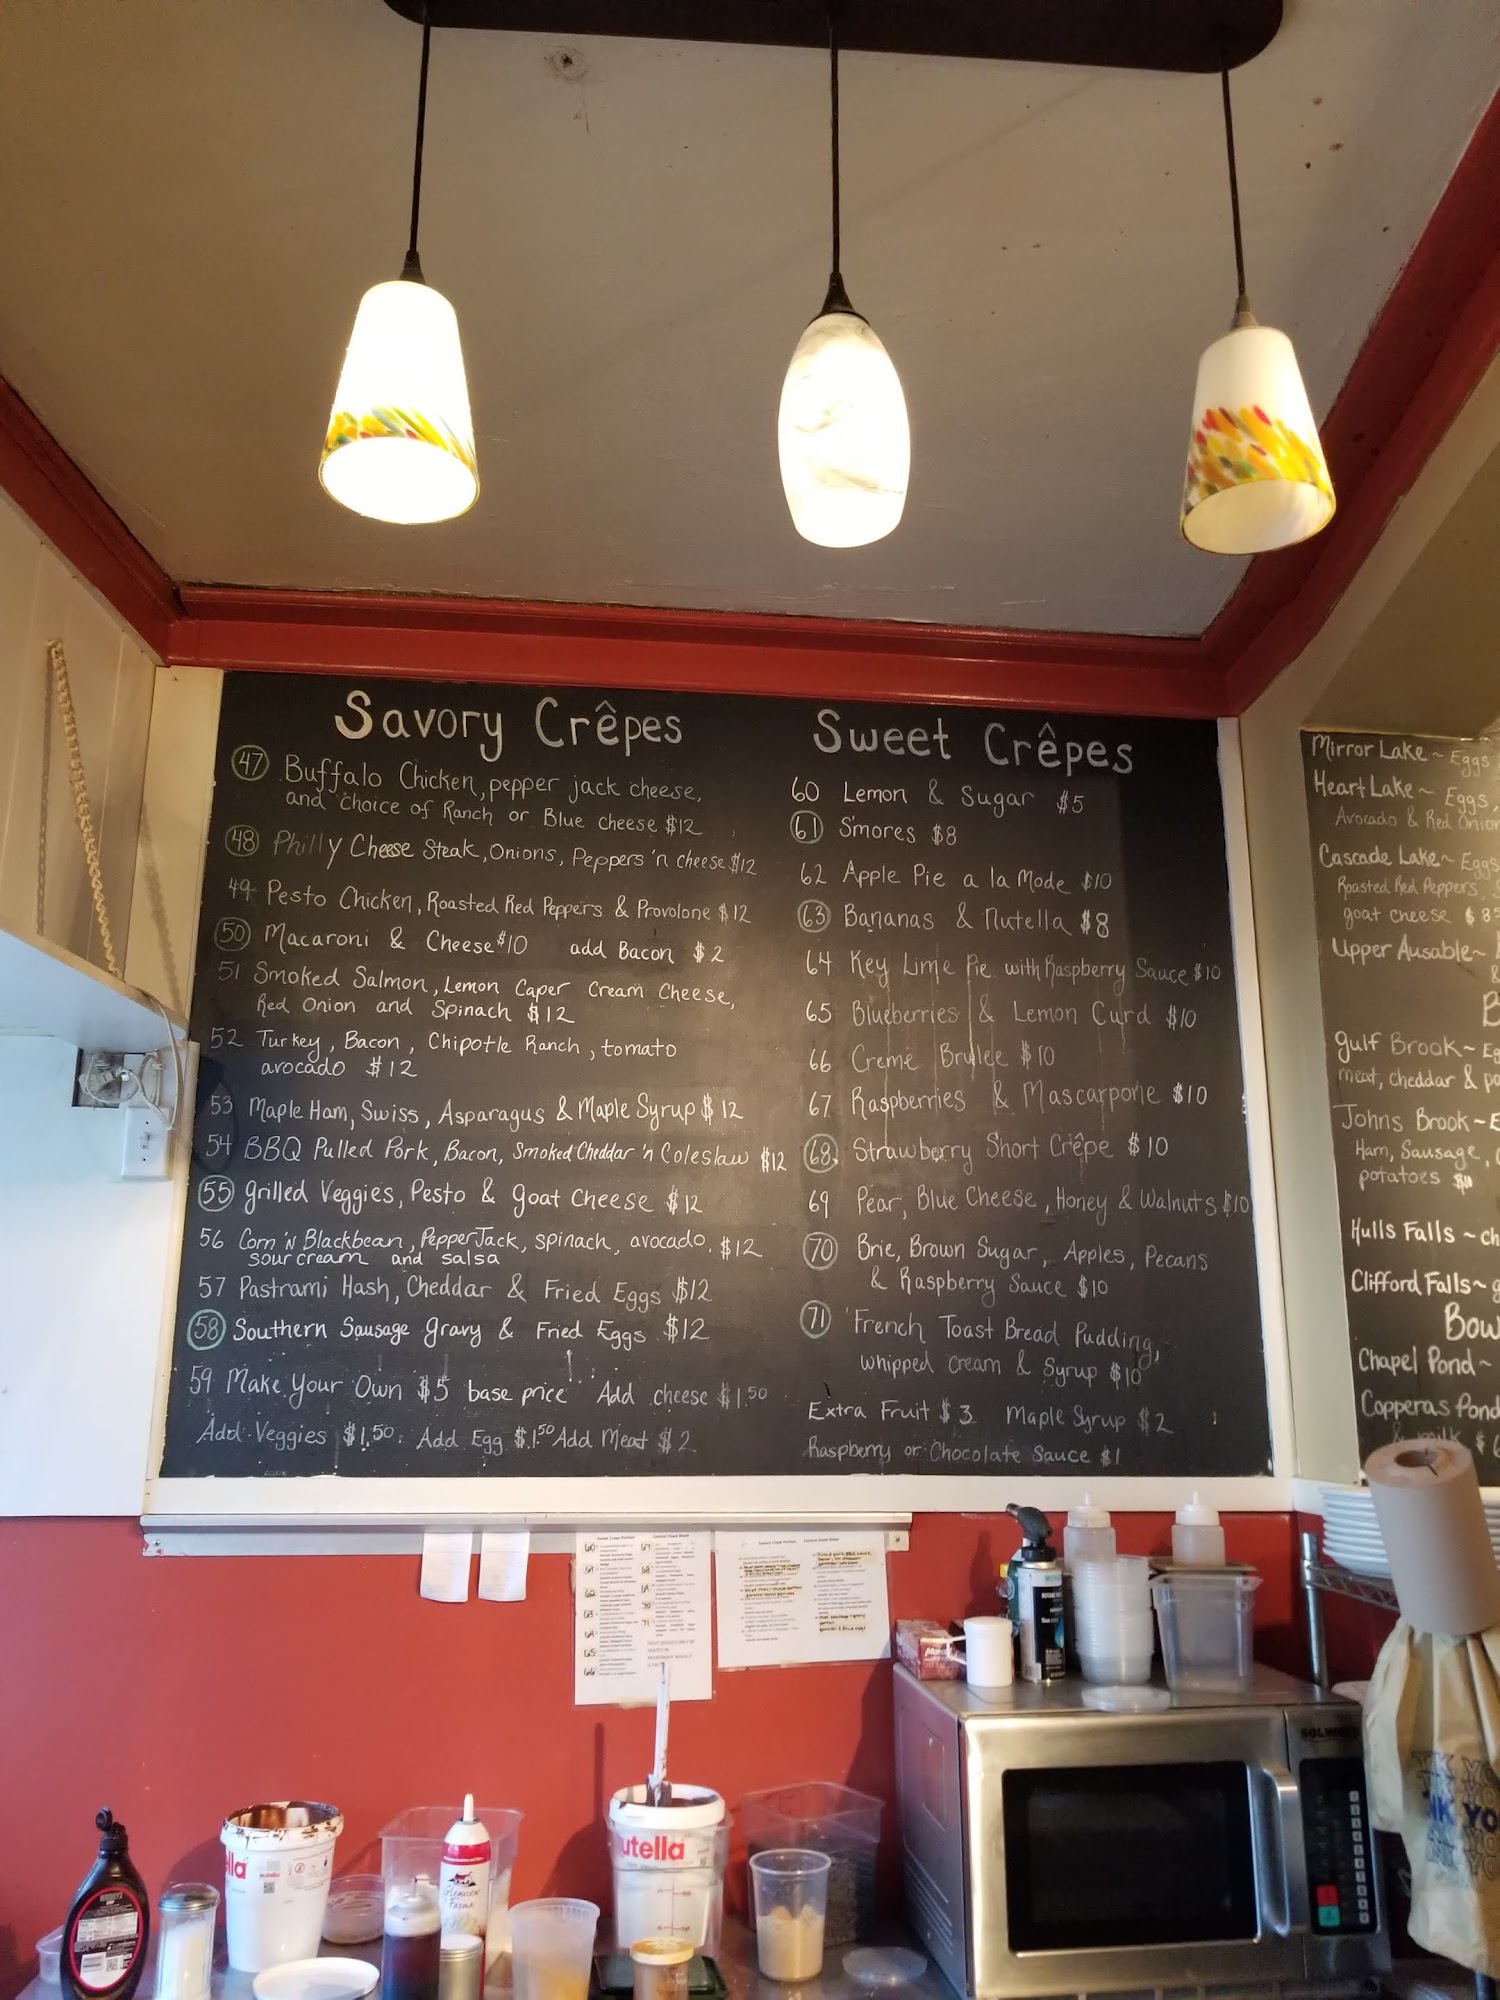 Savory Crêpes
47 Buffalo Chicken, pepper jack cheese,
and choice of Ranch or Blue cheese $12
48 Philly Cheese Steak, Onions, Peppers 'n cheese $12
49 Pesto Chicken, Roasted Red Peppers & Provolone $12
50 Macaroni & Cheese $10 add Bacon $2
51 Smoked Salmon, Lemon Caper Cream Cheese,
Red Onion and Spinach $12
52 Turkey, Bacon, Chipotle Ranch, tomato
avocado $12
53 Maple Ham, Swiss, Asparagus & Maple Syrup $12
54 BBQ Pulled Pork, Bacon, Smoked Cheddar 'n Coleslaw $12
55 Grilled Veggies, Pesto & Goat Cheese $12
56 Corn 'N Blackbean, Pepper Jack, spinach, avocado, $12
sour cream and salsa
57 Pastrami Hash, Cheddar & Fried Eggs $12
58 Southern Sausage gravy & Fried Eggs $12
59 Make Your Own $5 base price Add cheese $1.50
Add Veggies $1.50. Add Egg $1.50 Add Meat $2
Sweet Crêpes
60 Lemon & Sugar $5
61 S'mores $8
62 Apple Pie a la Mode $10
63 Bananas & Nutella $8
64 Key Lime Pie with Raspberry Sauce $10
65 Blueberries & Lemon Curd $10
66 Creme Brulee $10
67 Raspberries & Mascarpone $10
68 Strawberry Short Crêpe $10
69 Pear, Blue Cheese, Honey & Walnuts $10
70 Brie, Brown Sugar, Apples, Pecans
& Raspberry Sauce $10
71 French Toast Bread Pudding,
whipped cream & Syrup $10
Extra Fruit $3 Maple Syrup $2
Raspberry or Chocolate Sauce $1
Mirror Lake~ Eggs
Heart Lake~ Eggs,
Avocado & Red Onion
Cascade Lake~ Eggs
Roasted Red Peppers,
goat cheese
Upper Ausable~
&
B
Gulf Brook~
meat, cheddar &
Johns Brook~ E
Ham, Sausage,
potatoes $10
Hulls Falls ~ ch
Clifford Falls~ g
Bow
Chapel Pond~
Copperas Pond
& milk $
Sweet Crepe Portion
60
61
62
63
64
65
66
67
68
69
70
71
HERSHEY'S
lla
nutella
utella